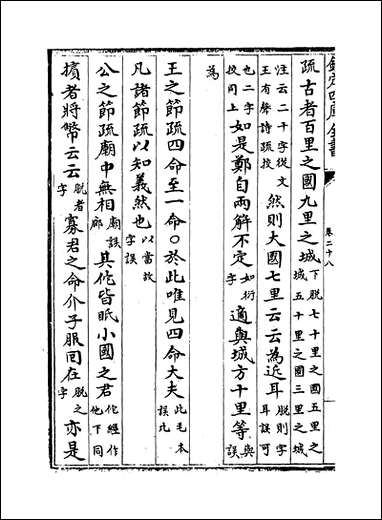 欽定四庫全書
卷二十八
疏古者百里之國九里之城下脱七十里之國五里之城五十里之國三里之城
注云二十字從文王有聲詩疏挍然則大國七里云云為近耳脱則字耳誤可
也二字挍同上如是鄭自兩解不定如衍字適與城方十里等與誤
為
王之節疏四命至一命○於此唯見四命大夫此毛本誤北
凡諸節疏以知義然也以當故字誤
公之節疏廟中無相廟誤廊其佗皆眂小國之君佗經作他下同
擯者將幣云云脱者字寡君之命介子服回在脱之字亦是